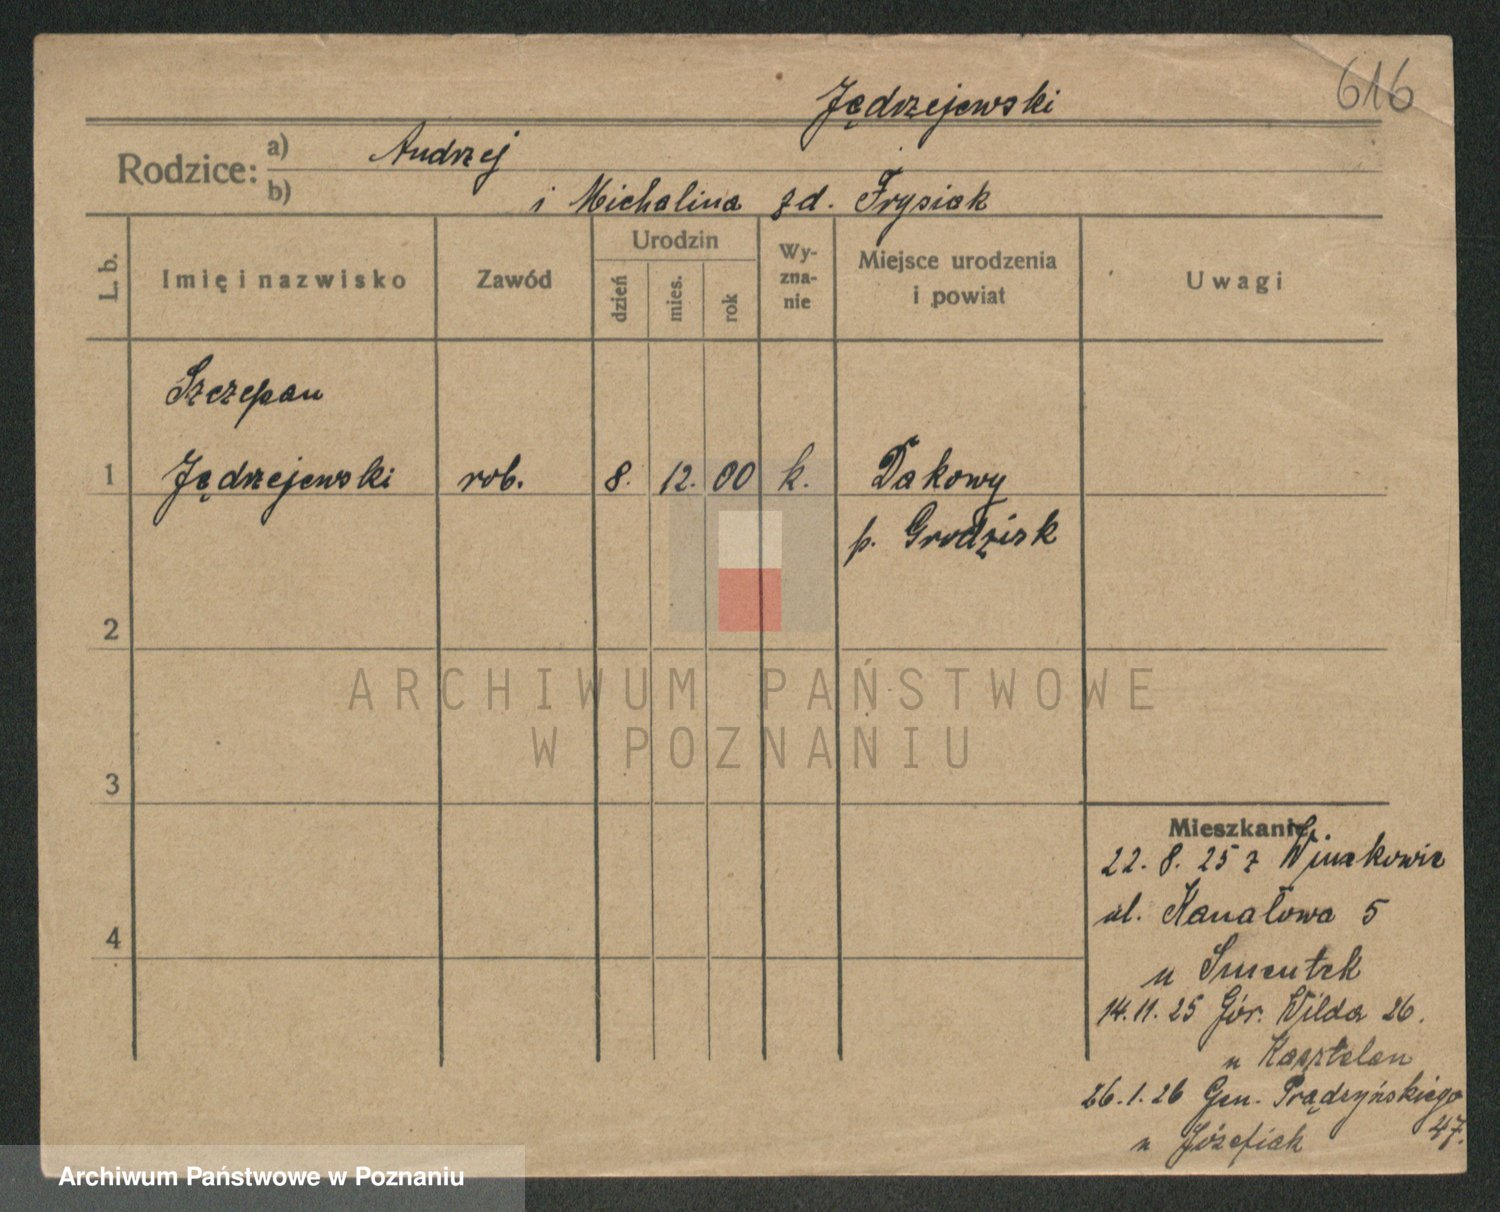 616
Jędrzejewski
Rodzice:
a) Andrzej
b) i Michalina zd. Frysiak
L. b.
Imię i nazwisko
Zawód
Urodzin
dzień
mies.
rok
Wy-
zna-
nie
Miejsce urodzenia
i powiat
Uwagi
Szczepan
1 Jędrzejewski rob. 8. 12. 00 k. Dakowy
p. Grodzisk
2
ARCHIWUM PAŃSTWOWE
W POZNANIU
3
Mieszkanie
22. 8. 25 z
ul. Kanałowa 5
4
u Smentek
14. 11. 25 Gór. Wilda 26.
u Kasztelan
26. 1. 26 Gen. Prądzyńskiego
47.
u Józefiak
Archiwum Państwowe w Poznaniu